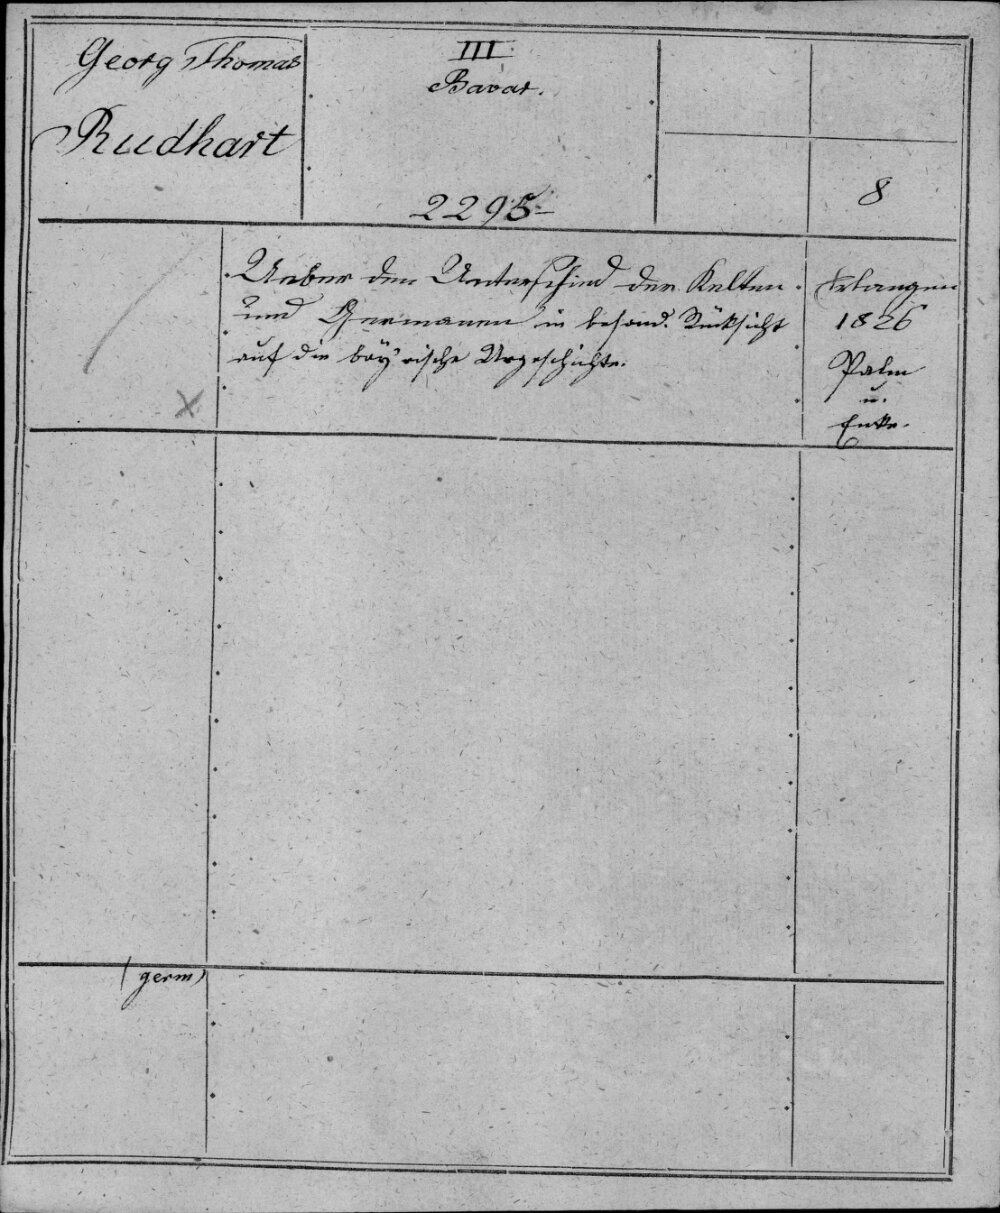 Georg Thomas
Rudhart
III
Bavar.
2295
8
Ueber den Unterschied der Kelten
und Germanen in besond. Rücksicht
auf die bay'rische Urgeschichte.
Erlangen
1826
Palm
u.
Enke.
(germ)